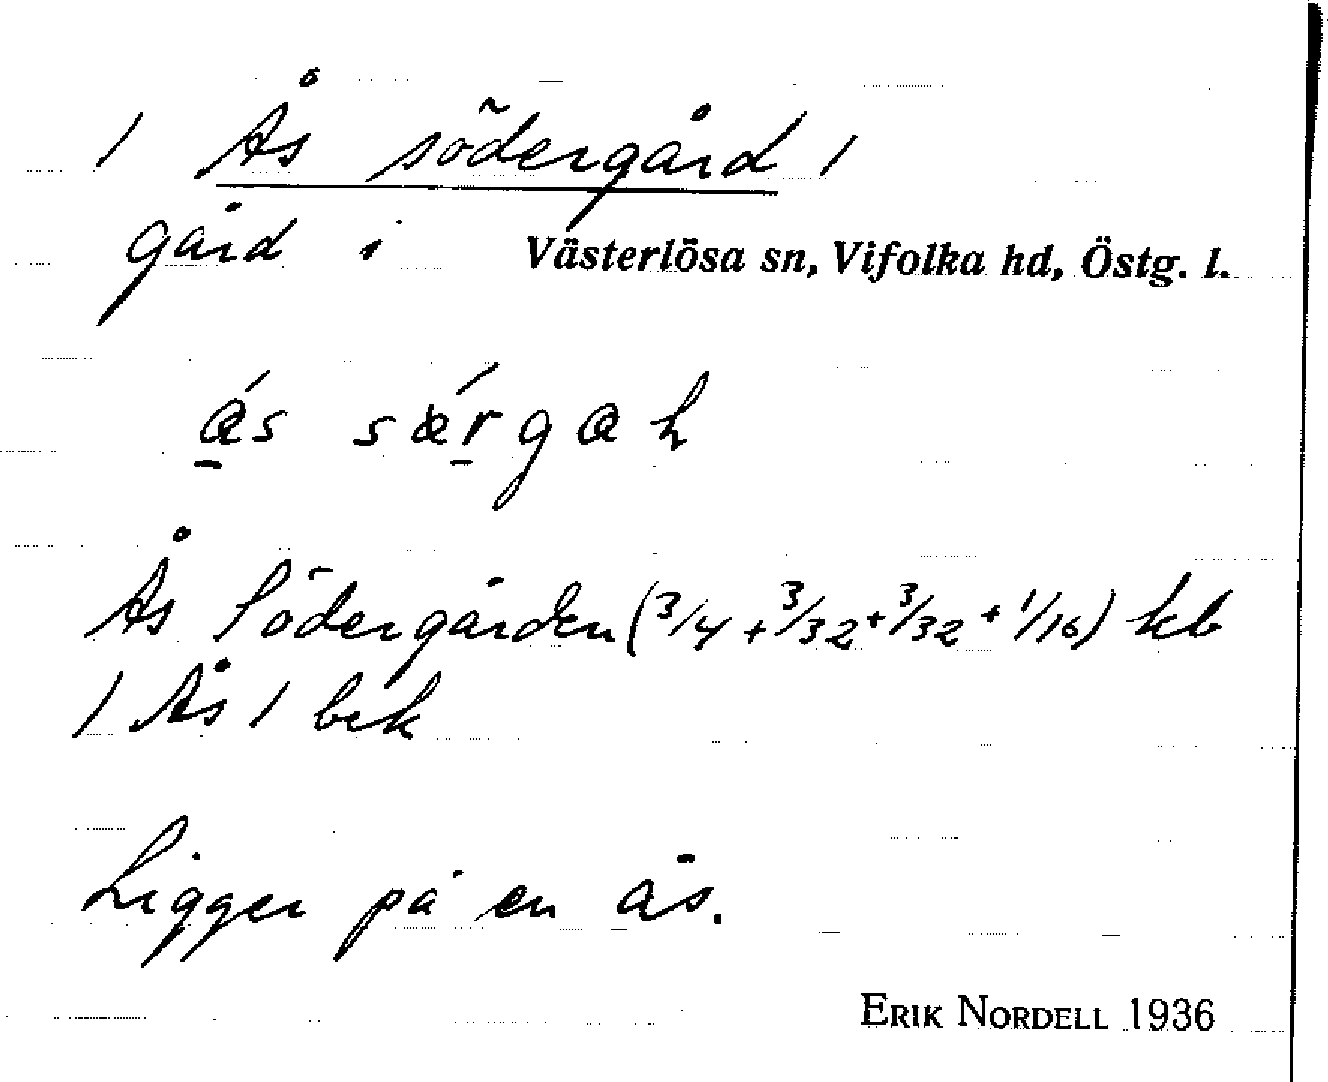 / Ås södergård /
gård i Västerlösa sn, Vifolka hd, Östg. l.
ås særgah
Ås Södergården (3/4 + 3/32 + 3/32 + 1/16) kb
/ Ås / bek
Ligger på en ås.
ERIK NORDELL 1936